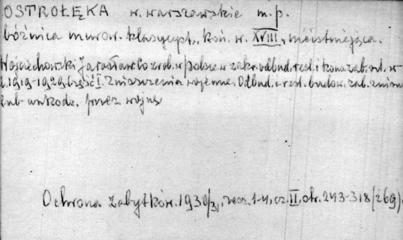 OSTROŁĘKA w. warszawskie m.p.
bóżnica murow. klasycyst., kon. w. XVIII, nieistniejąca.
Wojciechowski Jarosław: Co zrob. w Polsce w zakr. odbud. rest. i konserw. zab. ad. w
l. 1919-1929. Część I. Zniszczenia wojenne. Odbud. i rest. budow. zab. zniszcz.
lub uszkodz. przez wojnę
Ochrona Zabytków. 1930/31, zesz. 1-4, cz. II, str. 243-318 (269).